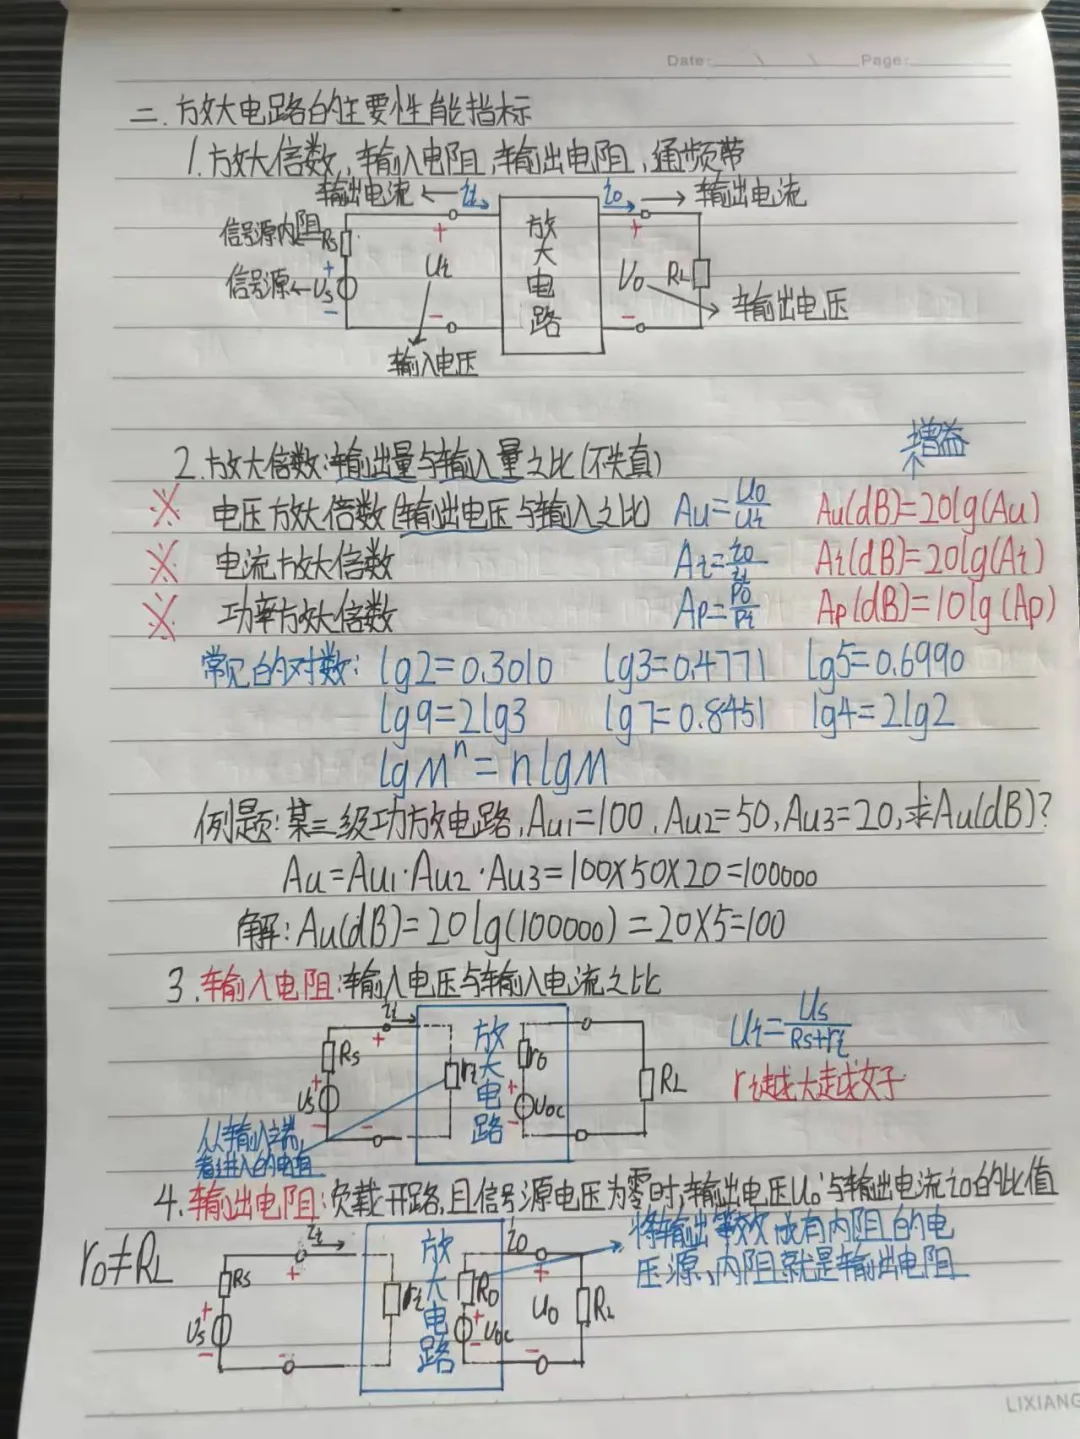 Date: \ \ Page:
二、放大电路的主要性能指标
1.放大倍数,输入电阻,输出电阻,通频带
输出电流 ← ii
io → 输出电流
信号源内阻 Rs
信号源 ← Us
+
-
+
Ui
-
放大电路
+
Uo
-
RL
输出电压
输入电压
增益
2.放大倍数:输出量与输入量之比(不失真)
※ 电压放大倍数(输出电压与输入之比) Au=Uo/Ui Au(dB)=20lg(Au)
※ 电流放大倍数 Ai=io/ii Ai(dB)=20lg(Ai)
※ 功率放大倍数 Ap=Po/Pi Ap(dB)=10lg(Ap)
常见的对数: lg2=0.3010 lg3=0.4771 lg5=0.6990
lg9=2lg3 lg7=0.8451 lg4=2lg2
lgMⁿ=nlgM
例题:某三级功放电路,Au1=100,Au2=50,Au3=20,求Au(dB)?
Au=Au1·Au2·Au3=100×50×20=100000
解:Au(dB)=20lg(100000)=20×5=100
3.输入电阻:输入电压与输入电流之比
ii
+
Rs
+
Us
-
-
ri
放大电路
ro
+
Uoc
-
RL
Ui=Us/Rs+ri
ri越大越好
从输入端,
看进入的电阻
4.输出电阻:负载开路,且信号源电压为零时,输出电压Uo与输出电流io的比值
ro≠RL
ii
+
Rs
+
Us
-
-
ri
放大电路
Ro
+
Uoc
-
io
+
Uo
-
RL
将输出等效成有内阻的电
压源,内阻就是输出电阻
LIXIANG